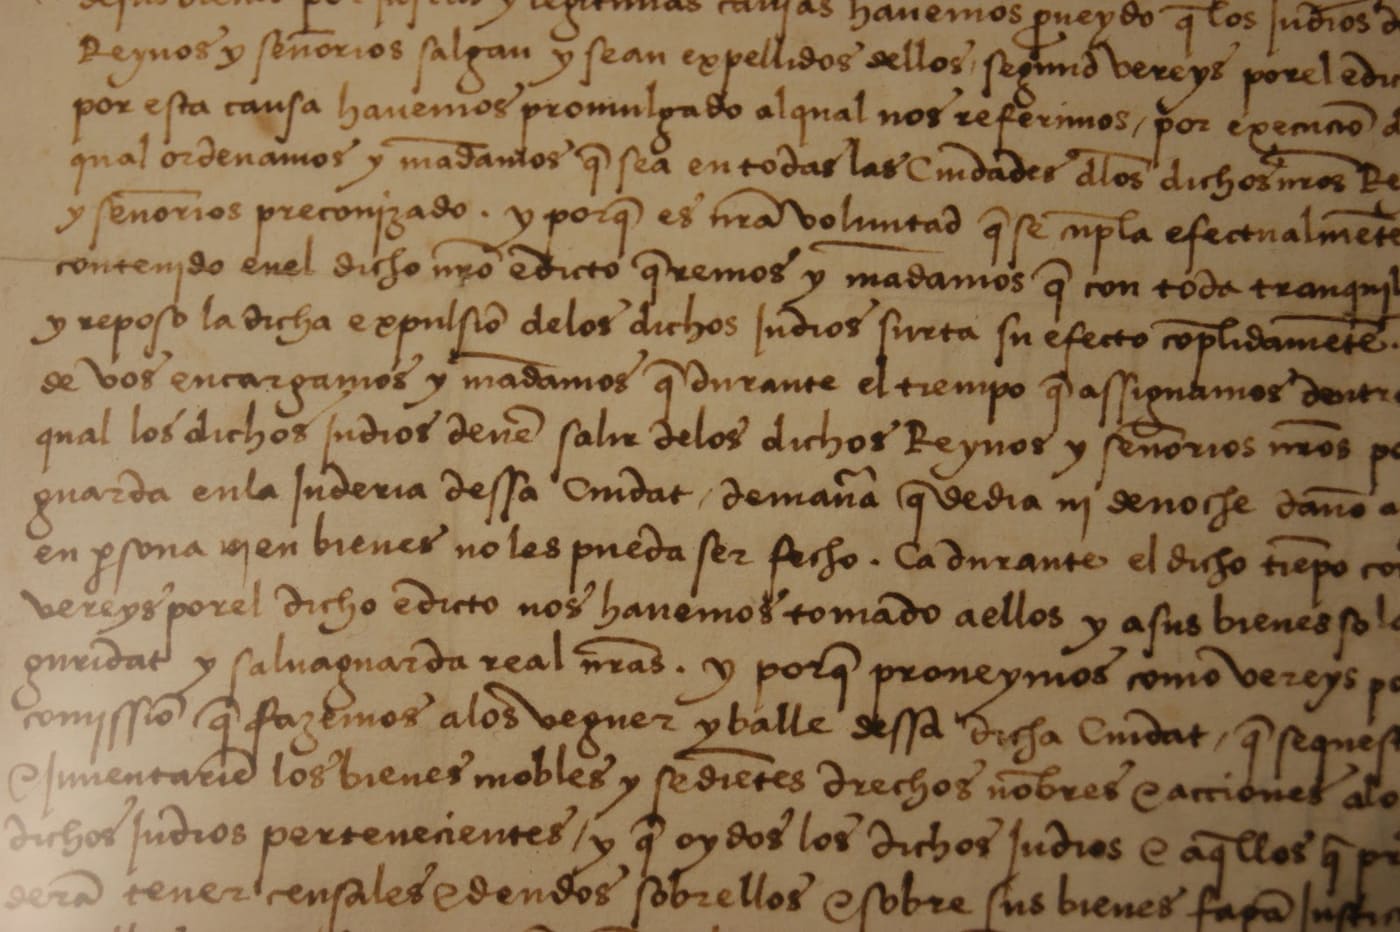 y legitimas causas hauemos ꝓueydo q̃ los Judios
Reynos y señorios salgan y sean expellidos dellos / segund vereys porel edi
por esta causa hauemos promulgado alqual nos referimos / por execuciõ d
qual ordenamos y mãdamos q̃ sea entodas las Ciudades dlos dichos nr̃os Re
y señorios preconizado . y porq̃ es nr̃a voluntad q̃ se cũpla efectualmẽte
contenido enel dicho nr̃o edicto q̃remos y mãdamos q̃ con toda tranquil
y reposo la dicha expulsiõ delos dichos Judios surta su efecto cõplidamẽte .
de vos encargamos y mãdamos q̃ durante el tiempo q̃ assignamos dentr
qual los dichos Judios deuẽ salir delos dichos Reynos y señorios nr̃os po
guarda enla Juderia dessa Ciudat / demañã q̃ dedia nj denoche daño a
en ꝑsona njen bienes noles pueda ser fecho . Ca durante el dicho tiẽpo co
vereys porel dicho edicto nos hauemos tomado aellos y asus bienes so l
guridat y saluaguarda real nr̃as . y porq̃ proueymos como vereys po
comjssiõ q̃ fazemos alos veguer y balle dessa dicha Ciudat / q̃ sequest
& Jnuentariẽ los bienes mobles y sediẽtes drechos nõbres & acciones alo
dichos Judios pertenecientes / y q̃ oydos los dichos Judios & aq̃llos q̃ pr
derã tener censales & deudos sobrellos & sobre sus bienes fagã Justic